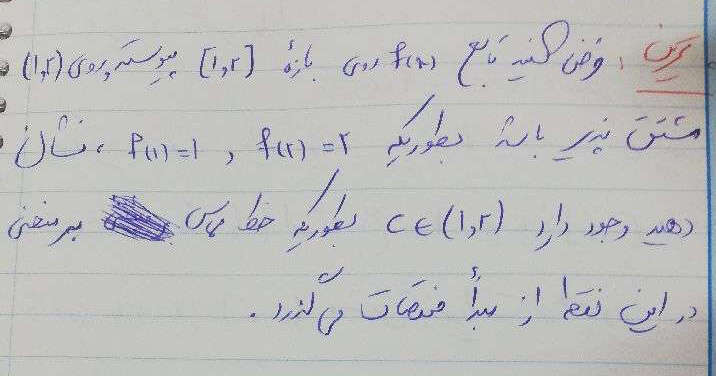 تمرین: فرض کنید تابع f(x) روی بازهٔ [۱,۲] پیوسته و روی (۱,۲)
مشتق پذیر باشد بطوریکه f(۲)=۲ و f(۱)=۱ ، نشان
دهید وجود دارد c∈(۱,۲) بطوریکه خط مماس بر منحنی
در این نقطه از مبدأ مختصات می‌گذرد.